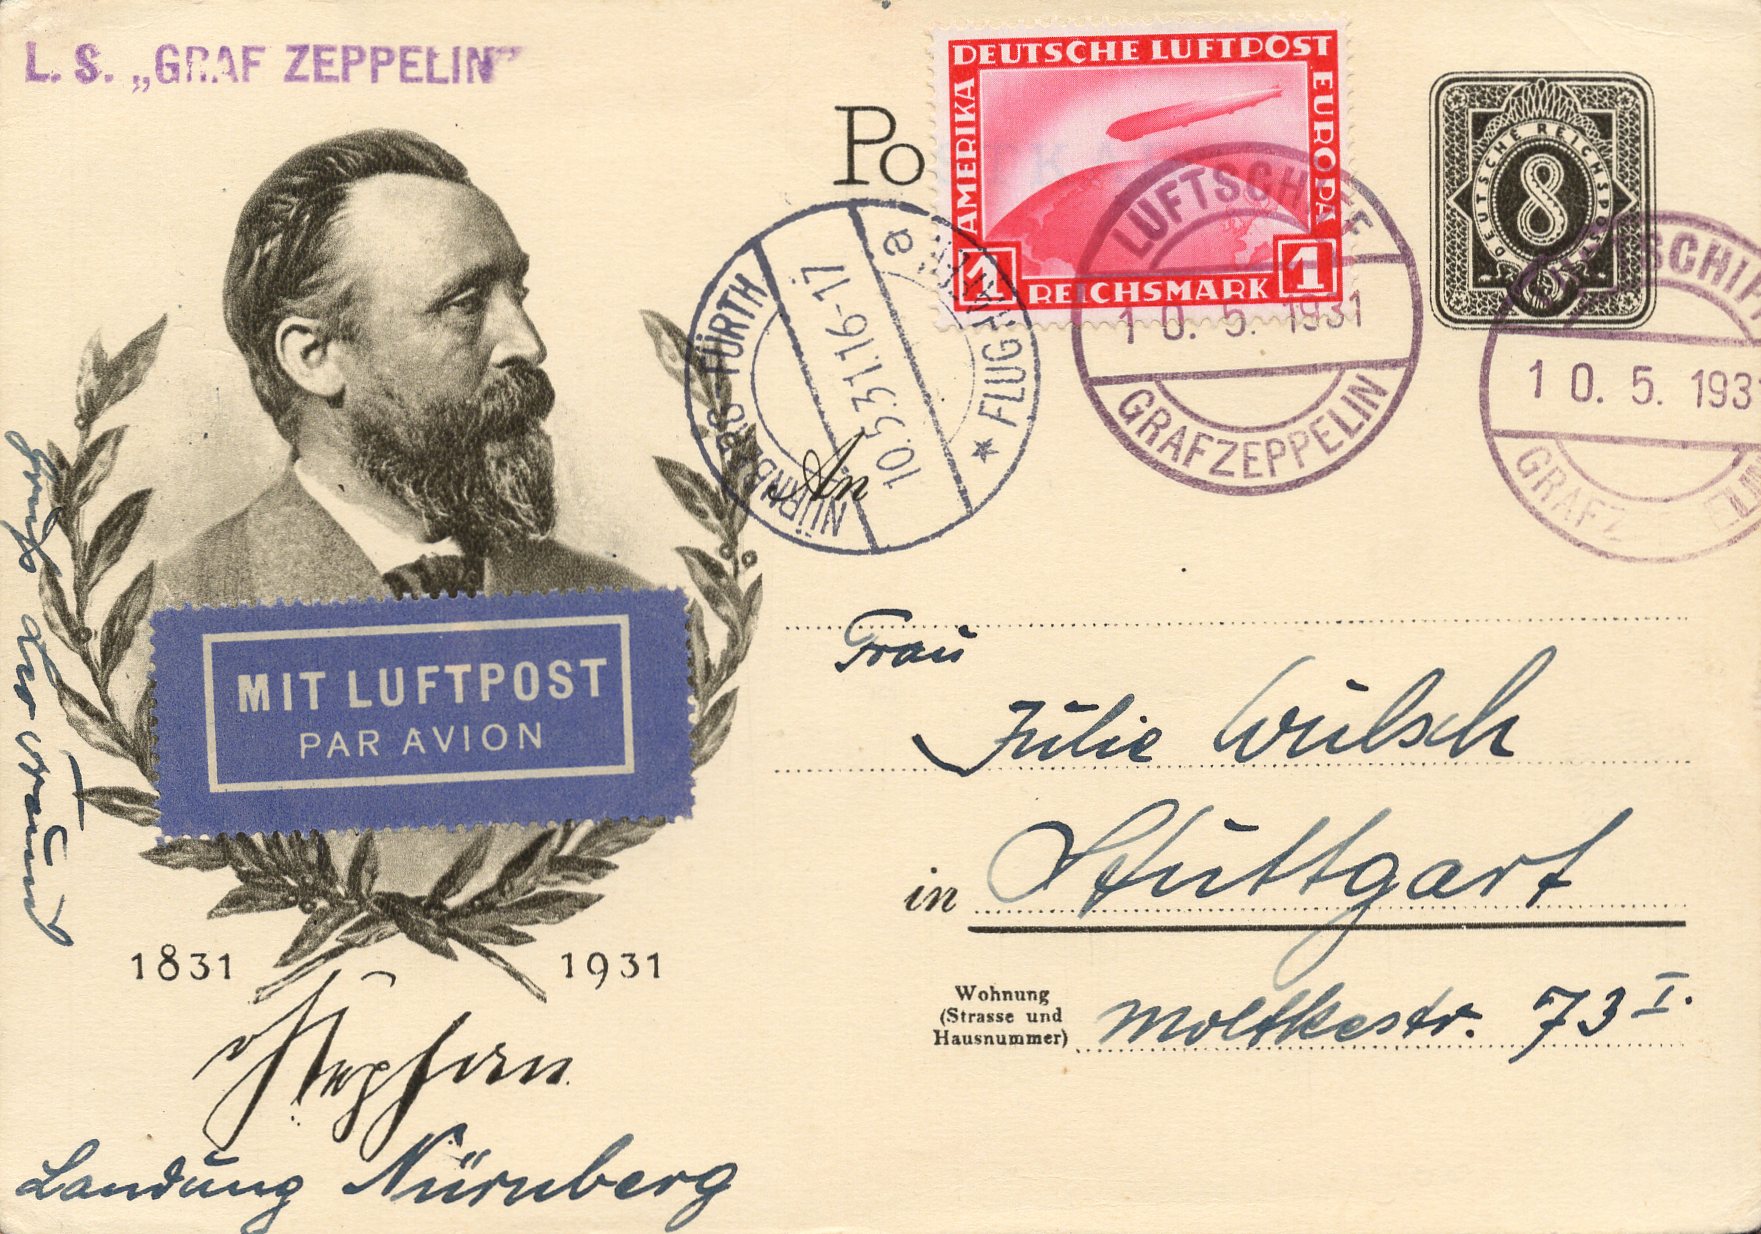 L. S. „GRAF ZEPPELIN"
DEUTSCHE LUFTPOST
AMERIKA
EUROPA
1
REICHSMARK
1
DEUTSCHE REICHSPOST
8
Po
LUFTSCHIFF
10. 5. 1931
GRAF ZEPPELIN
SCHIF
10. 5. 193
GRAF Z
NÜRNBERG-FÜRTH
10.5.31.16-17
a
* FLUG
An
MIT LUFTPOST
PAR AVION
Frau
Julie Wulsch
in Stuttgart
Wohnung
(Strasse und
Hausnummer)
Moltkestr. 73 I.
1831
1931
Stephan
Landung Nürnberg